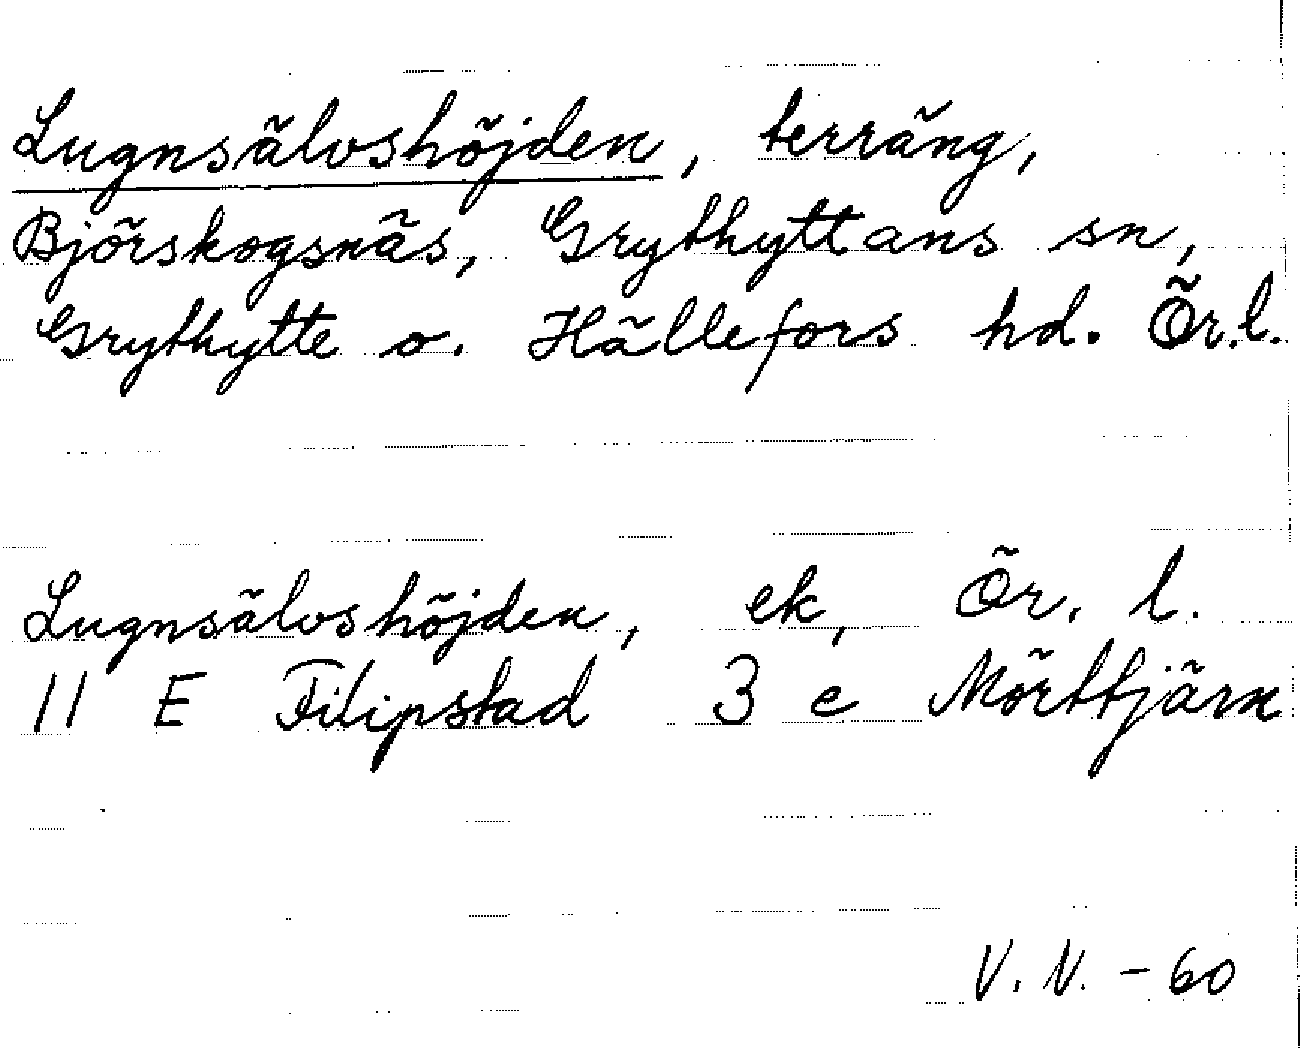 Lugnsälvshöjden, terräng,
Björskogsnäs, Grythyttans sn,
Grythytte o. Hällefors hd. Ör.l.
Lugnsälvshöjden, ek, Ör. l.
11 E Filipstad 3 e Mörttjärn
V. N. - 60